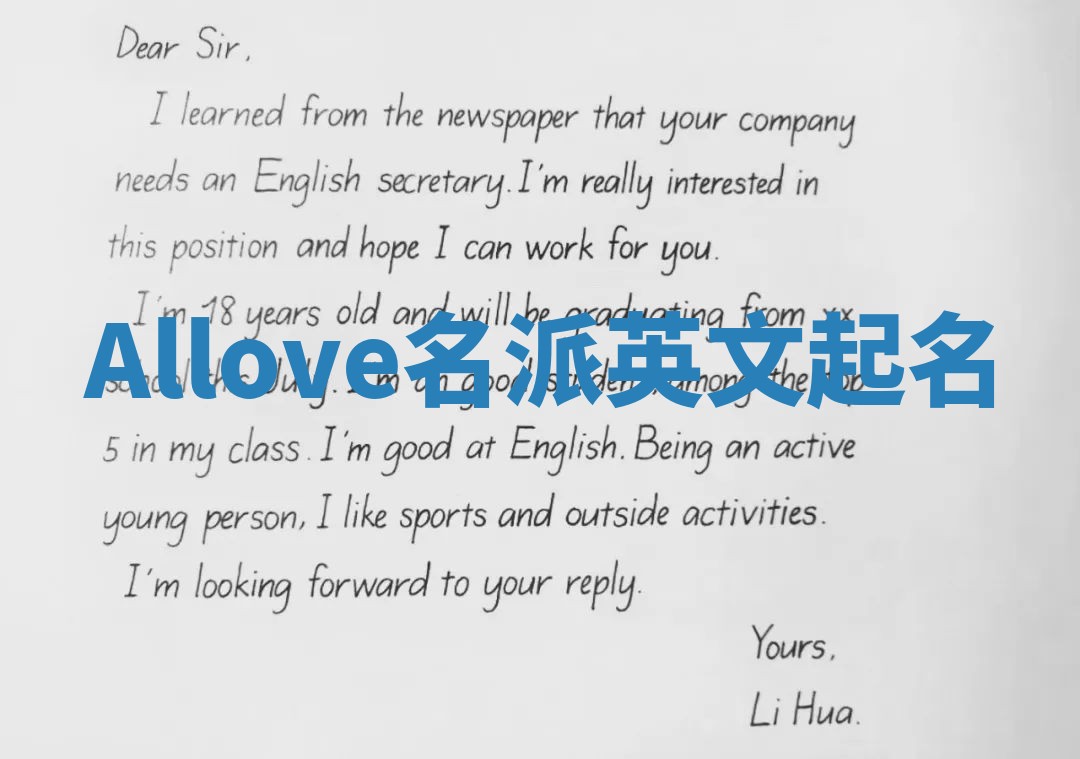 Dear Sir,
I learned from the newspaper that your company
needs an English secretary. I'm really interested in
this position and hope I can work for you.
I'm 18 years old and will be graduating from xx
Allove名派英文起名
school this July. I'm an good student, among the top
5 in my class. I'm good at English. Being an active
young person, I like sports and outside activities.
I'm looking forward to your reply.
Yours,
Li Hua.